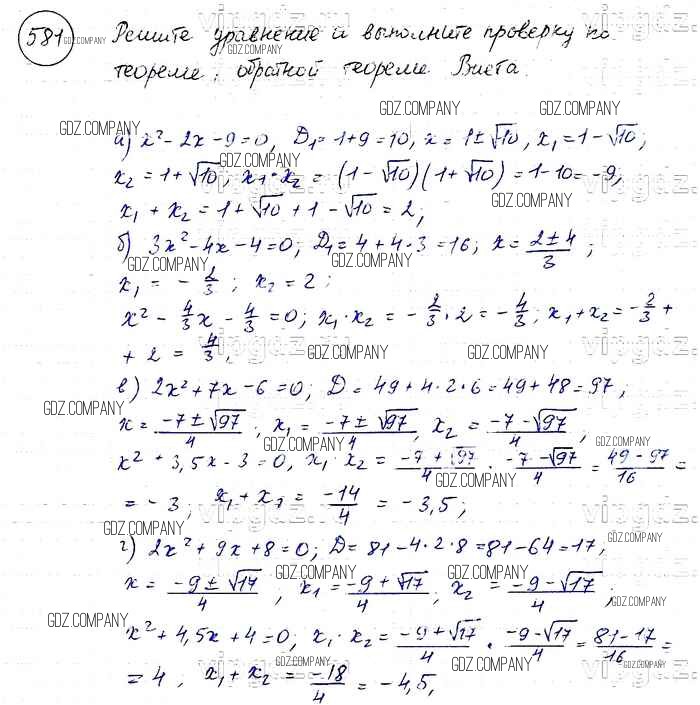 581 Решите уравнение и выполните проверку по
теореме, обратной теореме Виета.
а) x² - 2x - 9 = 0, D₁ = 1 + 9 = 10, x = 1 ± √10, x₁ = 1 - √10;
x₂ = 1 + √10, x₁ · x₂ = (1 - √10)(1 + √10) = 1 - 10 = -9;
x₁ + x₂ = 1 + √10 + 1 - √10 = 2;
б) 3x² - 4x - 4 = 0; D₁ = 4 + 4 · 3 = 16; x = (2 ± 4)/3;
x₁ = - 2/3; x₂ = 2;
x² - 4/3 x - 4/3 = 0; x₁ · x₂ = - 2/3 · 2 = - 4/3; x₁ + x₂ = - 2/3 +
+ 2 = 4/3;
в) 2x² + 7x - 6 = 0; D = 49 + 4 · 2 · 6 = 49 + 48 = 97;
x = (-7 ± √97)/4; x₁ = (-7 ± √97)/4; x₂ = (-7 - √97)/4;
x² + 3,5x - 3 = 0, x₁ · x₂ = (-7 + √97)/4 · (-7 - √97)/4 = (49 - 97)/16 =
= -3; x₁ + x₂ = -14/4 = -3,5;
г) 2x² + 9x + 8 = 0; D = 81 - 4 · 2 · 8 = 81 - 64 = 17;
x = (-9 ± √17)/4; x₁ = (-9 + √17)/4; x₂ = (-9 - √17)/4;
x² + 4,5x + 4 = 0; x₁ · x₂ = (-9 + √17)/4 · (-9 - √17)/4 = (81 - 17)/16 =
= 4; x₁ + x₂ = -18/4 = -4,5;
GDZ.COMPANY
vipgdz.ru